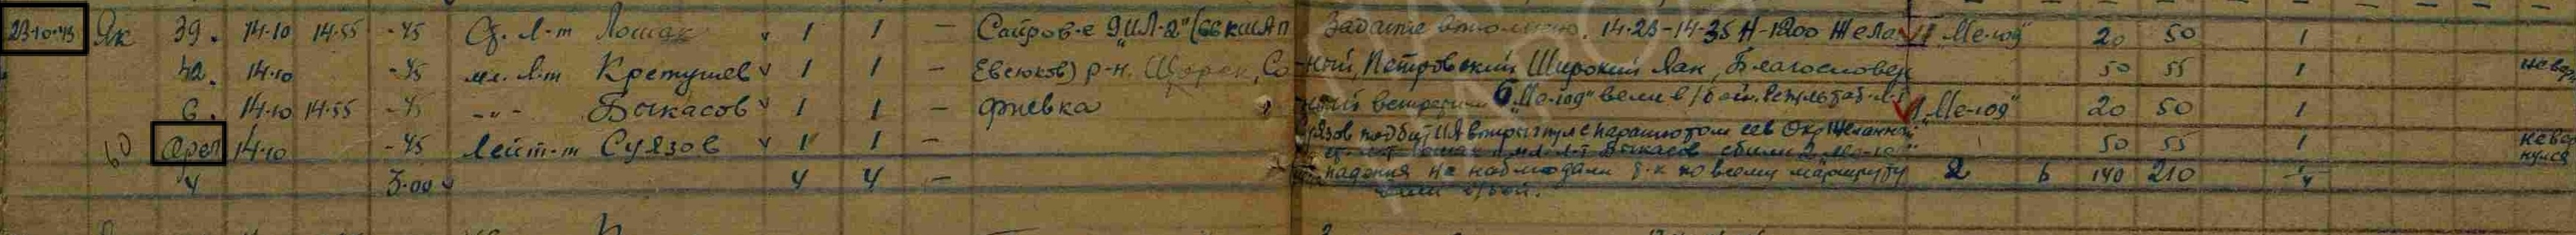 23.10.43 Як 39. 14.10 14.55 -45 Ст. Л-т Лошак v 1 1 — Сопров-е 9 "ИЛ-2" (66 КШАП Задание выполнено. 14.23-14.35 Н-1200 Жела 1 "Ме-109" 20 50 1
42. 14.10 -45 мл. Л-т Кретушев v 1 1 — Евсюков) р-н. Со ный, Петровский, Широкий Лан, Благословен 50 55 1
6. 14.10 14.55 -45 -"- Быкасов v 1 1 — фиевка ный встретили 6 "Ме-109" вели в/бой. 1 "Ме-109" 20 50 1
60 Орел 14.10 -45 Лейт-т Суязов v 1 1 — Суязов подбит с парашютом 50 55 1 невер
Лошак и мл. л-т Быкасов сбили 2 "Ме-109" нулся
4 3.00 v 4 4 — падения не наблюдали т.к по всему маршруту 2 6 140 210 4
вели в/бой.